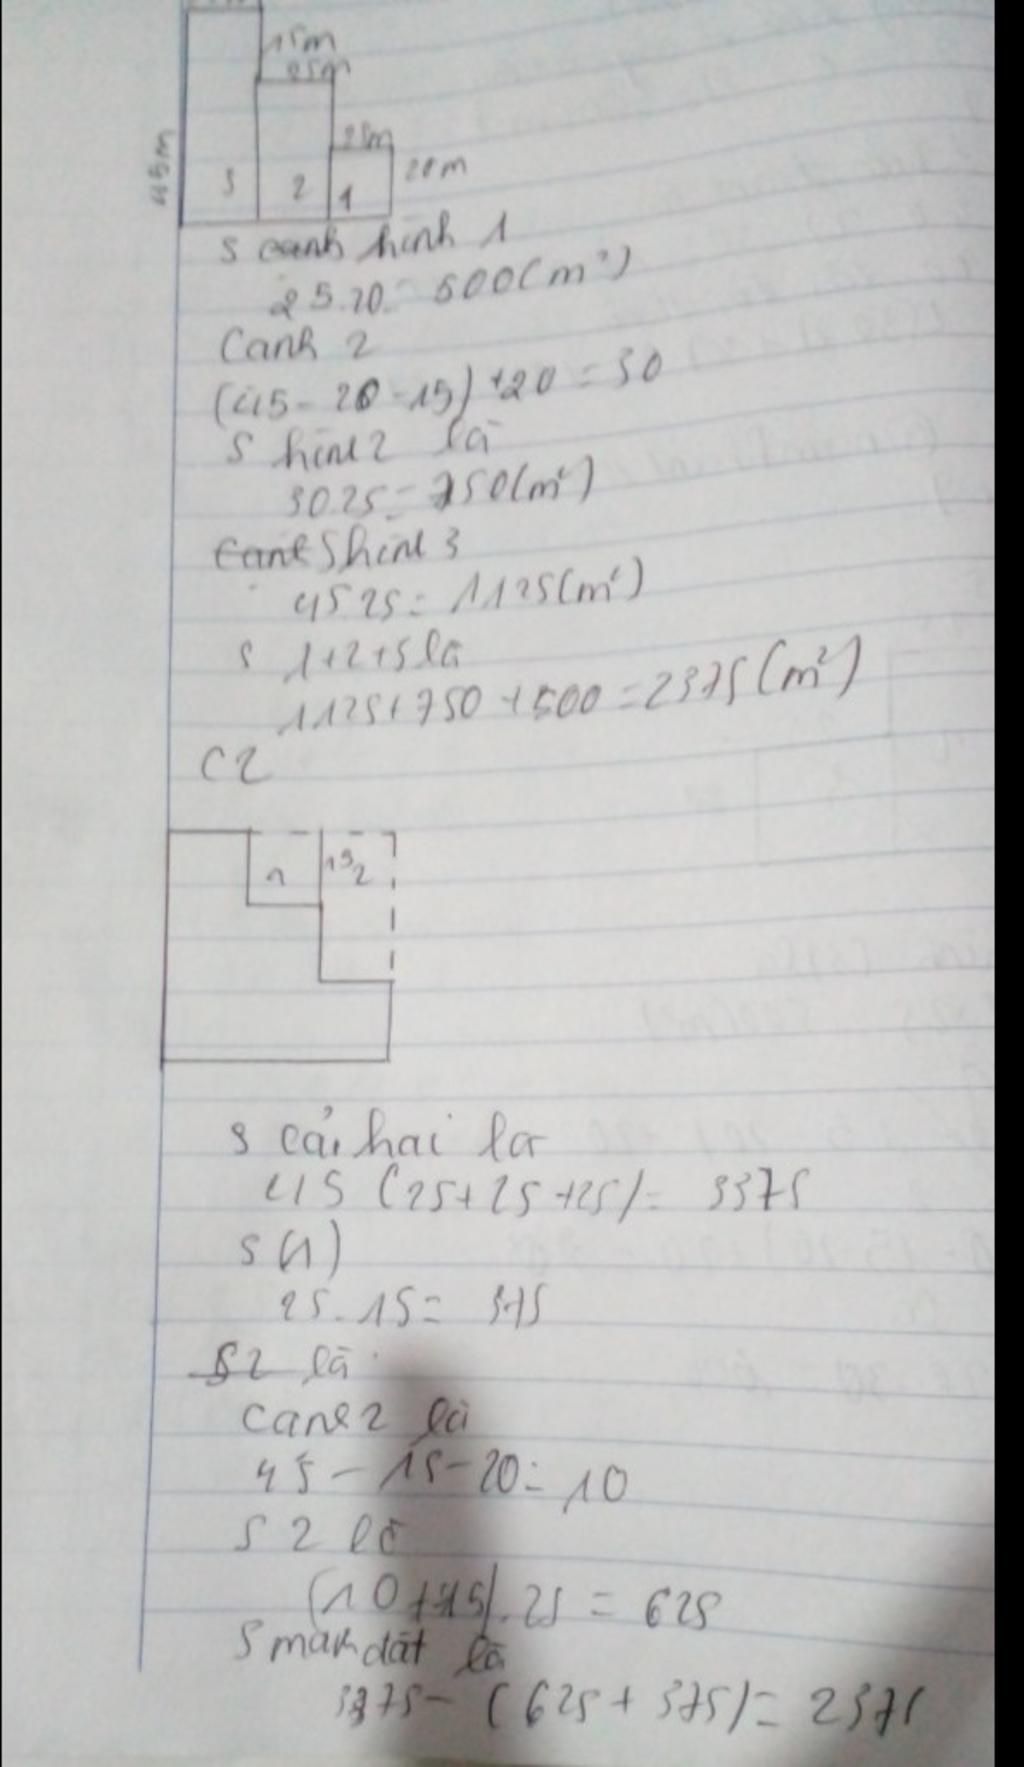 15m
25m
25m
45m
20m
3 2 1
S cạnh hình 1
25.20 = 500(m²)
Canh 2
(45-20-15)+20=30
S hình 2 là
30.25=750(m²)
S hình 3
45.25=1125(m²)
S 1+2+3 là
1125+750+500=2375(m²)
C2
1 15 2
S cả hai là
45 (25+25+25)= 3375
S(1)
25.15= 375
S2 là
canh 2 là
45-15-20=10
S 2 là
(10+15).25 = 625
S mảnh đất là
3375-(625+375)=2375